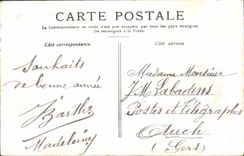 CARTE POSTALE
La Correspondance au recto n'est pas acceptée par tous les pays étrangers
(Se renseigner à la Poste).
Côté correspondance
Côté adresse
Souhaits
de bonne année
Barthe
Madeleine
Madame Monsieur
J M Labadens
Postes et Télégraphes
Auch
(Gers)